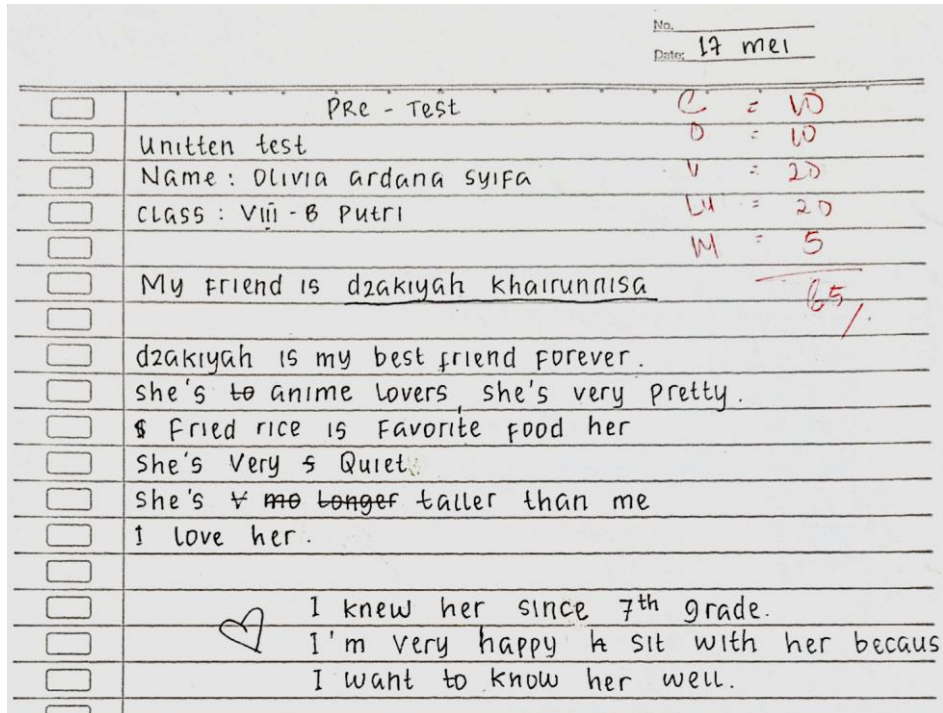 No.
Date: 17 mei
Pre - Test
Unitten test
Name : Olivia ardana syifa
Class : VIII - B Putri
My friend is dzakiyah khairunnisa
dzakiyah is my best friend forever.
She's to anime lovers, she's very pretty.
$ Fried rice is Favorite food her
She's very s Quiet
She's v mo longer taller than me
I love her.
I knew her since 7th grade.
I'm very happy sit with her becaus
I want to know her well.
C = 10
O = 10
V = 20
LU = 20
M = 5
65